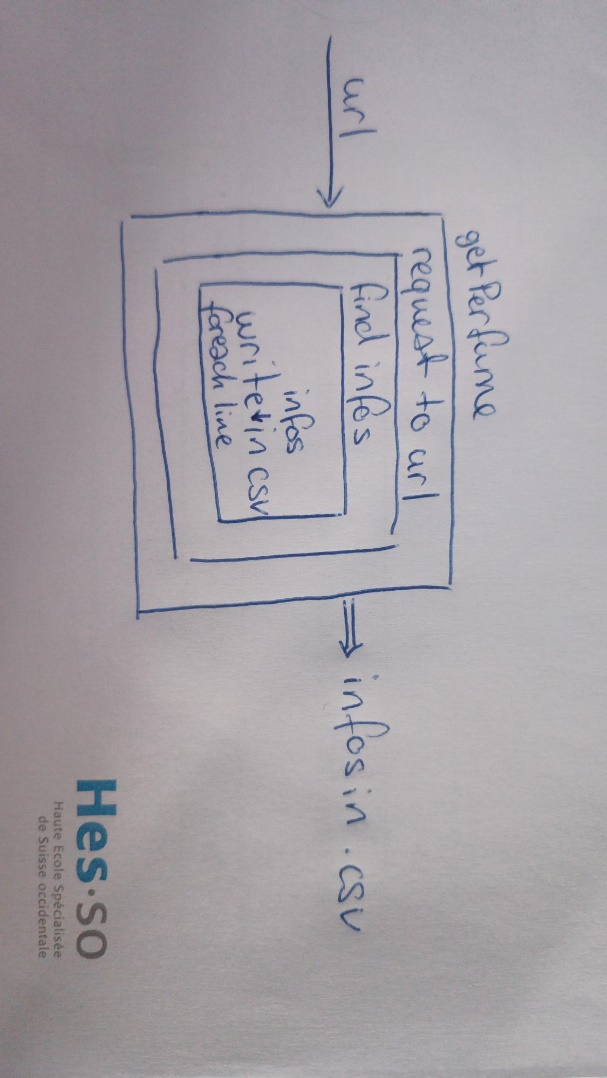 getPerfume
url
request to url
find infos
infos
write in csv
foreach line
infos in .csv
Hes·so
Haute Ecole Spécialisée
de Suisse occidentale